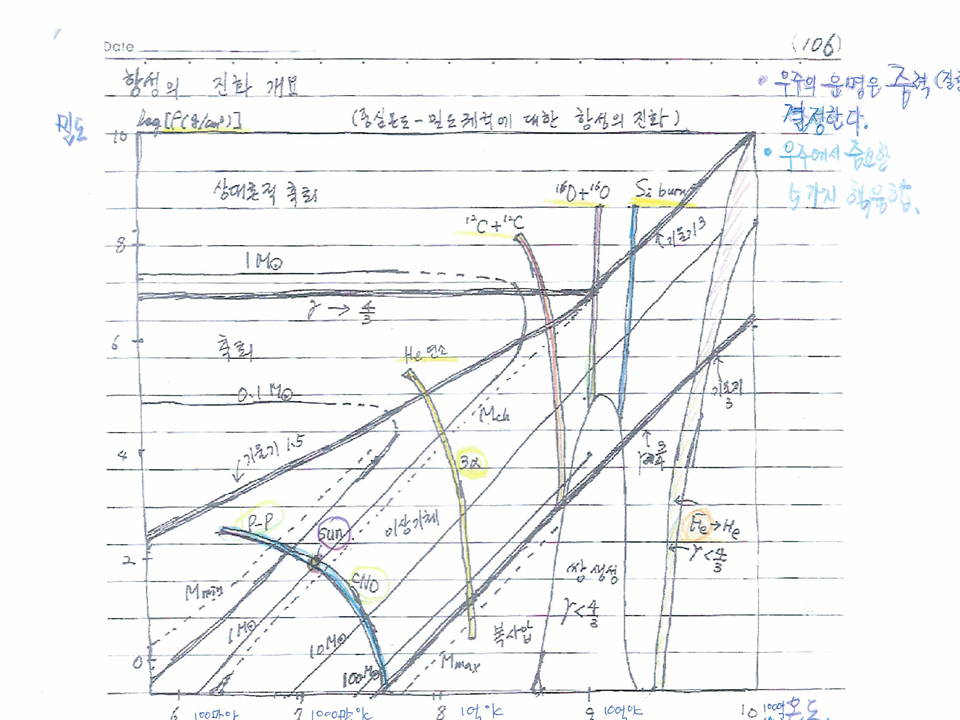 Date
(106)
항성의 진화 개요
• 우주의 운명은 중력
결정한다.
밀도
log[ρ(g/cm³)]
(중심온도-밀도궤적에 대한 항성의 진화)
• 우주에서 중요한
5가지 핵융합.
10
상대론적 축퇴
¹⁶O+¹⁶O
Si burn
¹²C+¹²C
기울기3
8
1M☉
γ → 4/3
6
축퇴
He연소
기울기 3
0.1M☉
Mch
기울기 1.5
4
3α
P-P
Sun
이상기체
Fe→He
γ<4/3
2
CNO
쌍생성
γ<4/3
Mmin
1M☉
10M☉
복사압
Mmax
100M☉
0
6
100만℃
7
1000만℃
8
1억℃
9
10억℃
10
100억
온도.